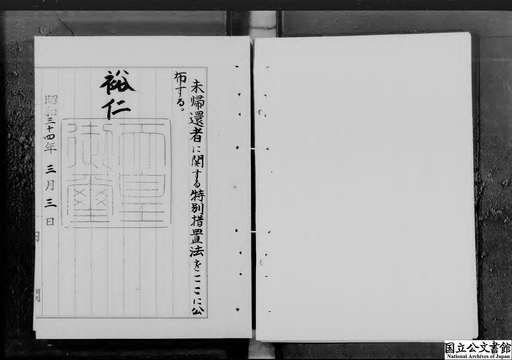 未帰還者に関する特別措置法をここに公
布する。
裕仁
天皇
御璽
昭和三十四年三月三日
国立公文書館
National Archives of Japan